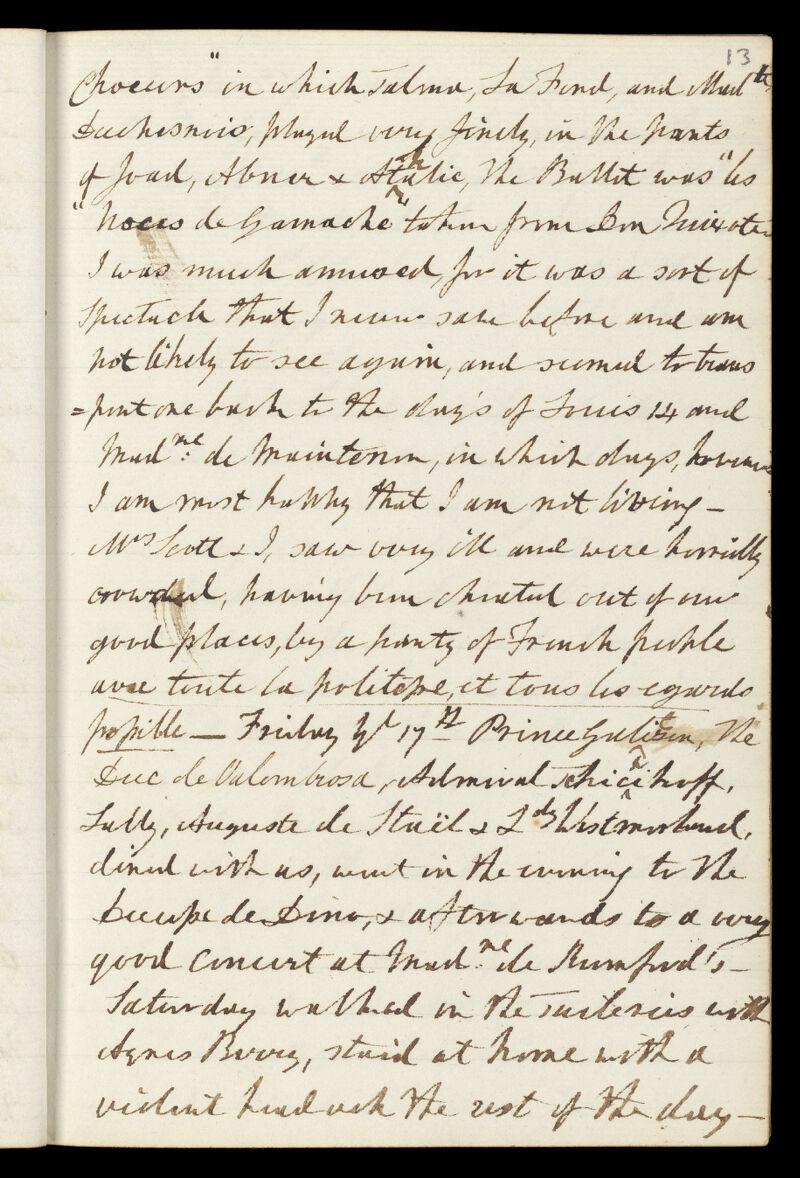 13
Choeurs" in which Talma, La Fond, and Madlle
Duchesnois, played very finely, in the parts
of Joad, Abner & Athalie, The Ballet was "les
"Noces de Gamache" taken from Don Quixote
I was much amused, for it was a sort of
Spectacle that I never saw before and am
not likely to see again, and seemed to trans
=port one back to the day's of Louis 14 and
Madme. de Maintenon, in which days, however
I am most happy that I am not living —
Mrs Scott & I, saw very ill and were horribly
crowded, having been cheated out of our
good places, by a party of French people
avec toute la politesse, et tous les egards
possible — Friday ye 17th Prince Galitzin, The
Duc de Valombrosa, Admiral Tchicihoff,
Lally, Auguste de Staël & Ldy Westmorland,
dined with us, went in the evening to the
Duchesse de Dino, & afterwards to a very
good Concert at Madme. de Rumford's —
Saturday walked in the Tuileries with
Agnes Berry, staid at home with a
violent headach the rest of the day —